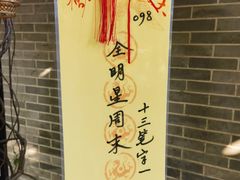 098
全明星周末
十三笔字一